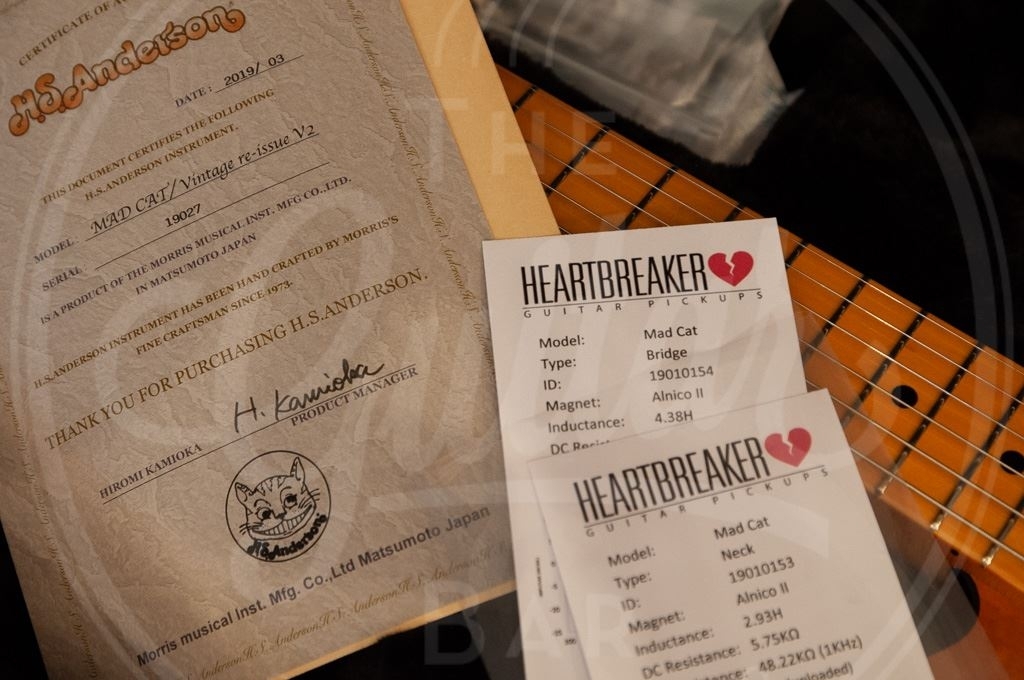 CERTIFICATE OF
H.S.Anderson
DATE : 2019/ 03
THIS DOCUMENT CERTIFIES THE FOLLOWING
H.S.ANDERSON INSTRUMENT.
MODEL: MAD CAT/Vintage re-issue V2
SERIAL 19027
IS A PRODUCT OF THE MORRIS MUSICAL INST. MFG CO., LTD.
IN MATSUMOTO JAPAN
H.S.ANDERSON INSTRUMENT HAS BEEN HAND CRAFTED BY MORRIS'S
FINE CRAFTSMAN SINCE 1973-
THANK YOU FOR PURCHASING H.S.ANDERSON.
H. Kamioka
HIROMI KAMIOKA PRODUCT MANAGER
H.S.Anderson
Morris musical Inst. Mfg. Co.,Ltd Matsumoto Japan
HEARTBREAKER
GUITAR PICKUPS
Model: Mad Cat
Type: Bridge
ID: 19010154
Magnet: Alnico II
Inductance: 4.38H
HEARTBREAKER
GUITAR PICKUPS
Model: Mad Cat
Type: Neck
ID: 19010153
Magnet: Alnico II
Inductance: 2.93H
DC Resistance: 5.75KΩ
48.22KΩ (1KHz)
THE
Guitar
BAR